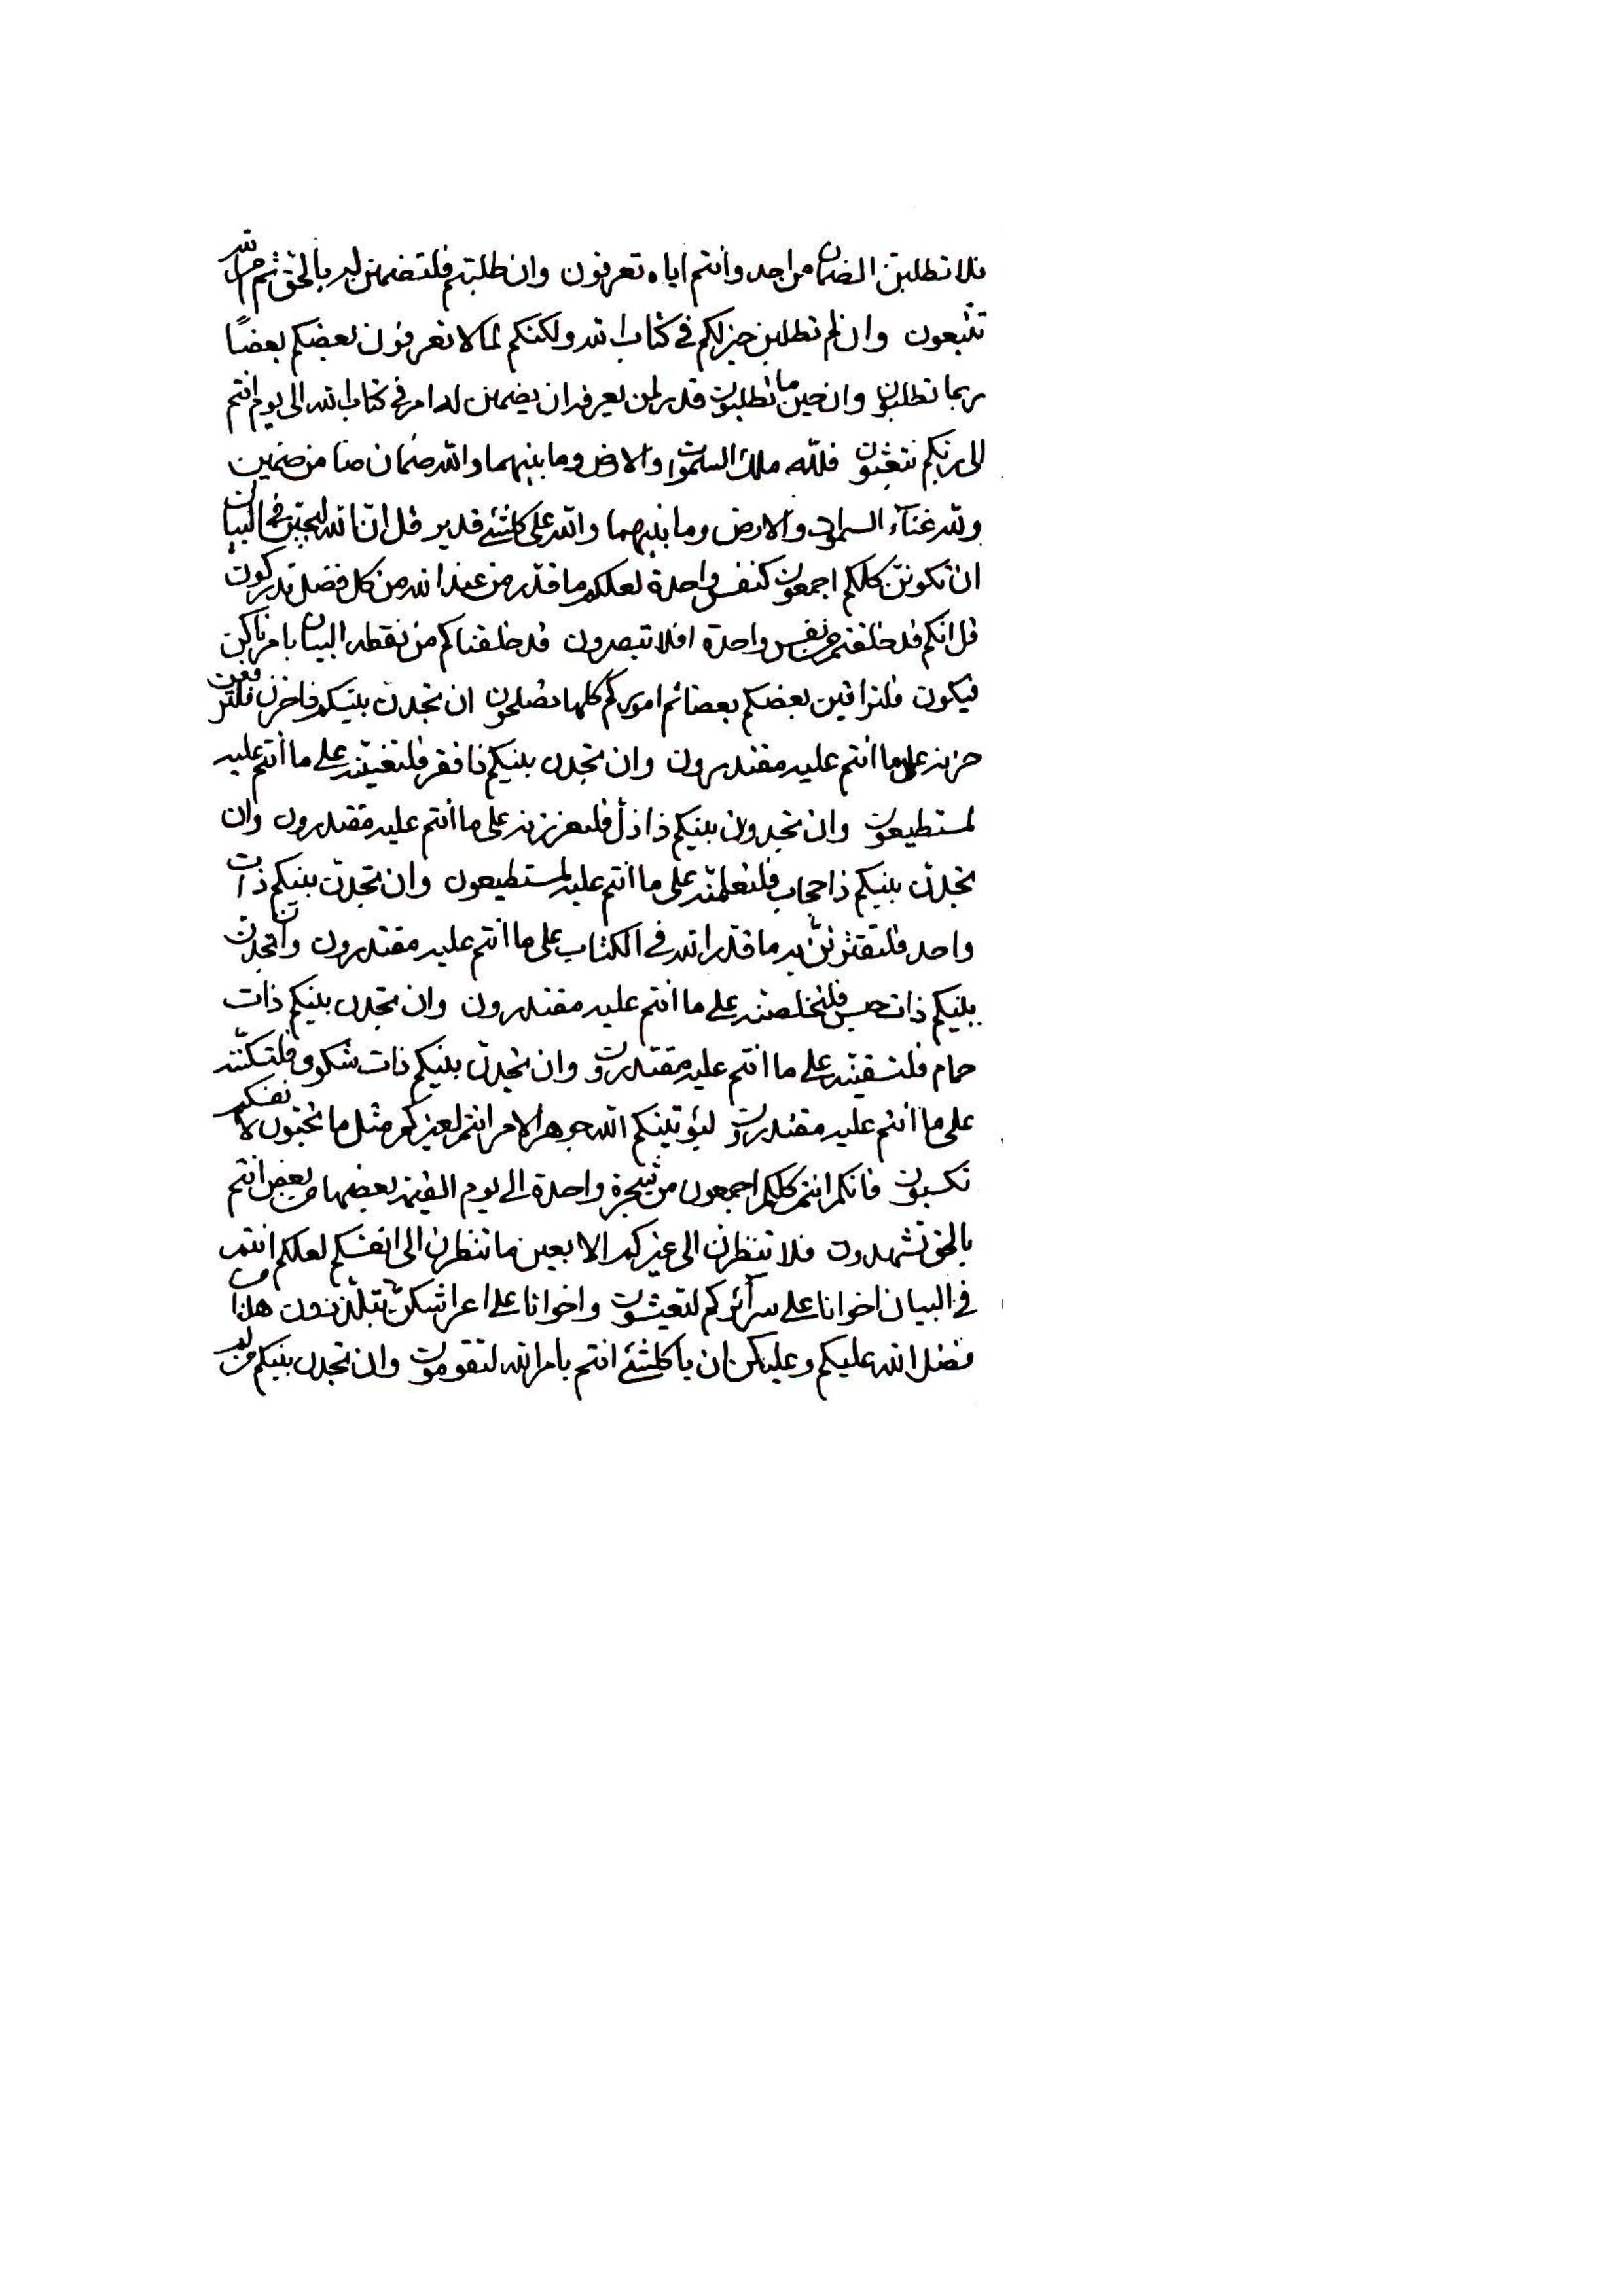 فلا تطلبن الضمان من احد وانتم اياه تعرفون وان طلبتم فلتضمنن له بالحق ثم امر الله
تتبعون وان لم تطلبن خير لكم في كتاب الله ولكنكم لما لا تعرفون بعضكم بعضًا
ربما تطلبون وان حين ما تطلبون قدر لمن يعرفه ان يضمنن له امر في كتاب الله الى يوم انتم
الى ربكم تبعثون فلله ملك السموات والارض وما بينهما والله ضمان ضامن ضمين
ولله غناء السموات والارض وما بينهما والله على كلشئ قدير قل انا لله ليحبن في البيان
ان تكونن كلكم اجمعون كنفس واحدة لعلكم ما قدر من عند الله من كل فضل تدركون
قل انكم قد خلقتم من نفس واحدة افلا تبصرون قد خلقناكم من نقطة البيان بامرنا كن
فيكون فلتراقبن بعضكم بعضا ثم اموركم كلها تصلحون ان تجدن بينكم ذا حزن فلترفعن
حزنه على ما انتم عليه مقتدرون وان تجدن بينكم ذا فقر فلتغنينه على ما انتم عليه
لمستطيعون وان تجدون بينكم ذا ذل فلتعززنه على ما انتم عليه مقتدرون وان
تجدن بينكم ذا حجاب فلتعلمنه على ما انتم عليه لمستطيعون وان تجدن بينكم ذات
واحد فلتقترنن به ما قدر الله في الكتاب على ما انتم عليه مقتدرون وان تجدن
بينكم ذات حبس فلتخلصنه على ما انتم عليه مقتدرون وان تجدن بينكم ذات
حمام فلتسقينه على ما انتم عليه مقتدرون وان تجدن بينكم ذات شكوى فلتسكننه
على ما انتم عليه مقتدرون ليؤتينكم الله جوهر الامر انتم لغيركم مثل ما تحبون لانفسكم
تكسبون فانكم انتم كلكم اجمعون من شجرة واحدة الى يوم القيمة بعضها من بعض انتم
بالحق تشهدون فلا تنظرن الى غيركم الا بعين ما تنظرن الى انفسكم لعلكم انتم
في البيان اخوانا على سرائركم لتعيشون واخوانا على اعراشكن تتلذذون هذا من
فضل الله عليكم وعليكن ان يا كلشئ انتم بامر الله لتقومون وان تجدن بينكم من له